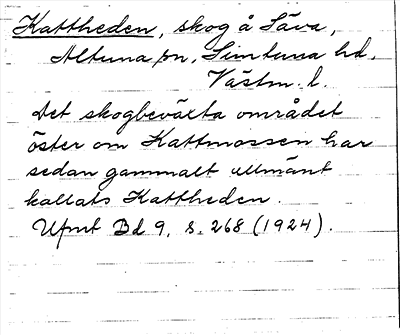 Kattheden, skog å Säva,
Altuna sn, Simtuna hd,
Västm. l.
Det skogbeväxta området
öster om Kattmossen har
sedan gammalt allmänt
kallats Kattheden.
Upml Bd 9, s. 268 (1924).